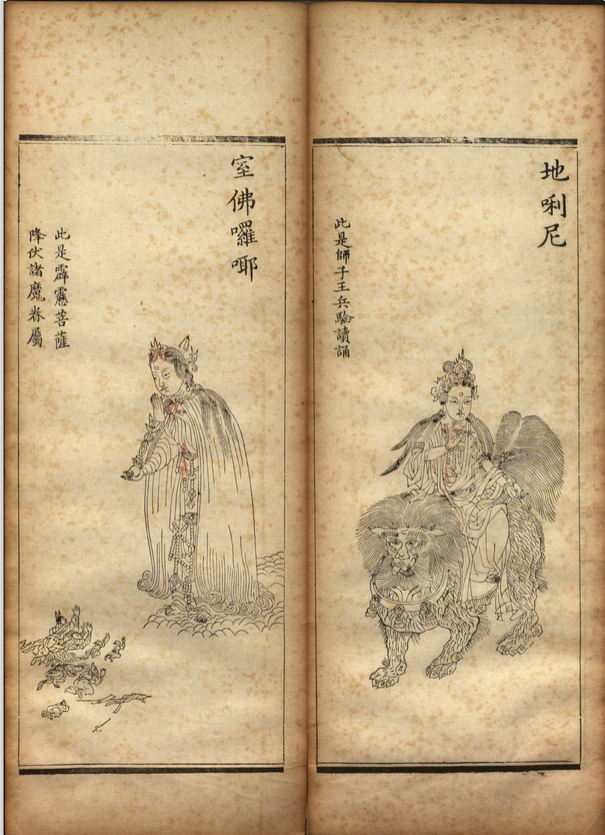 地唎尼
此是師子王兵驗讀誦
室佛囉耶
此是霹靂菩薩
降伏諸魔眷屬